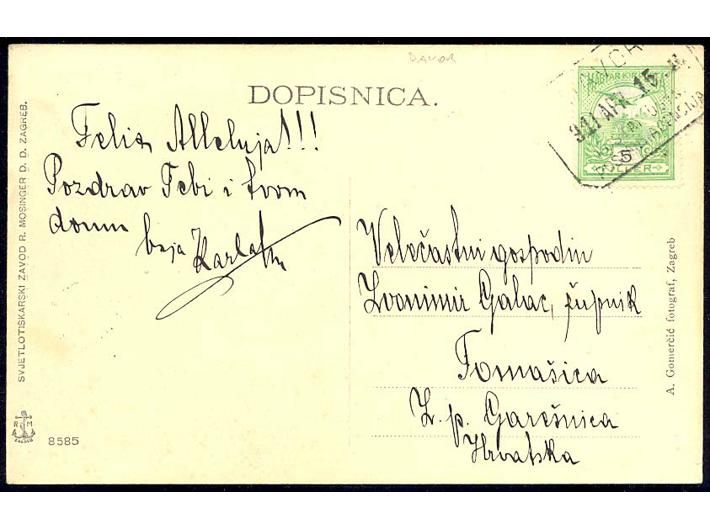 DAVOR
DOPISNICA.
Felix Alleluja!!!
Pozdrav Tebi i tvom
domu
Velečastni gospodin
Zvonimir Galac, župnik
Tomašica
Z. p. Garešnica
Hrvatska
SVJETLOTISKARSKI ZAVOD R. MOSINGER D. D. ZAGREB.
R M
8585
A. Gomerčić fotograf, Zagreb
911 APR. 15
MAGYAR KIR
5